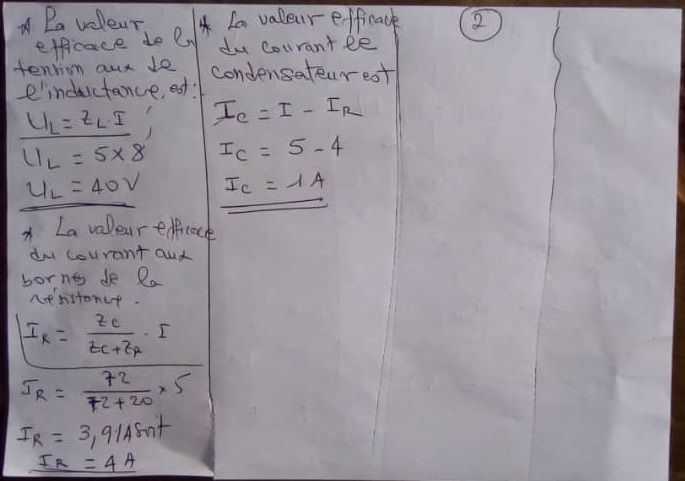 * La valeur
efficace de la
tension aux de
l'inductance, est:
UL = ZL.I
UL = 5×8
UL = 40V
* La valeur efficace
du courant aux
bornes de la
résistance.
IR = ZC / ZC+ZR . I
IR = 72 / 72+20 × 5
IR = 3,91A Soit
IR = 4 A
* La valeur efficace
du courant le
condensateur est
IC = I - IR
IC = 5 - 4
IC = 1 A
2